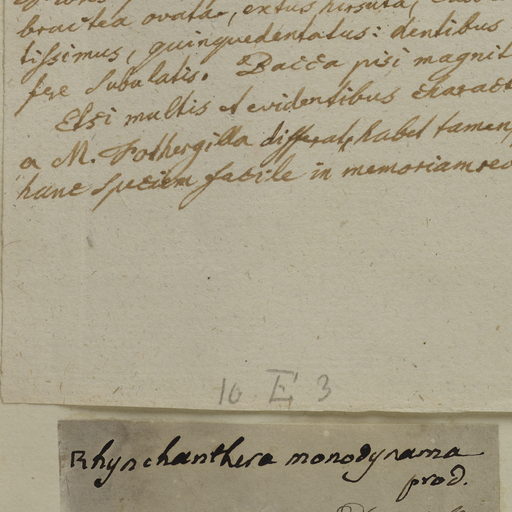 bractea ovata, extus hirsuta,
tissimus, quinquedentatus: dentibus
fere subulatis. Bacca pisi magnit
Etsi multis et evidentibus charact
a M. Fothergilla differat, habet tamen
hanc speciem facile in memoriam rev
10 E 3
Rhynchanthera monodynama
prod.